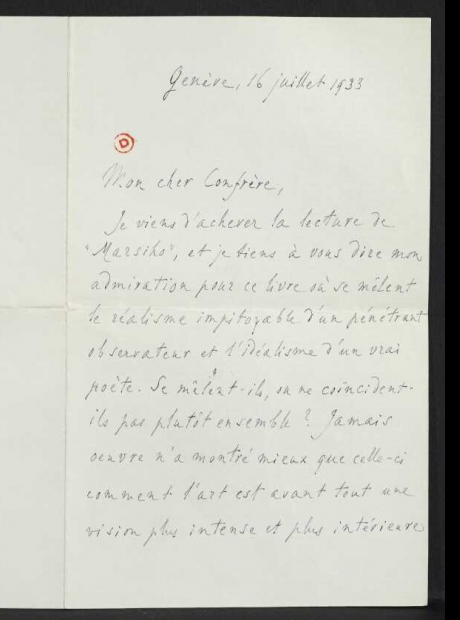 Genève, 16 juillet 1933
D
Mon cher Confrère,
Je viens d'achever la lecture de
"Marsiho", et je tiens à vous dire mon
admiration pour ce livre où se mêlent
le réalisme impitoyable d'un pénétrant
observateur et l'idéalisme d'un vrai
poète. Se mêlent-ils, ou ne coïncident-
ils pas plutôt ensemble ? Jamais
oeuvre n'a montré mieux que celle-ci
comment l'art est avant tout une
vision plus intense et plus intérieure